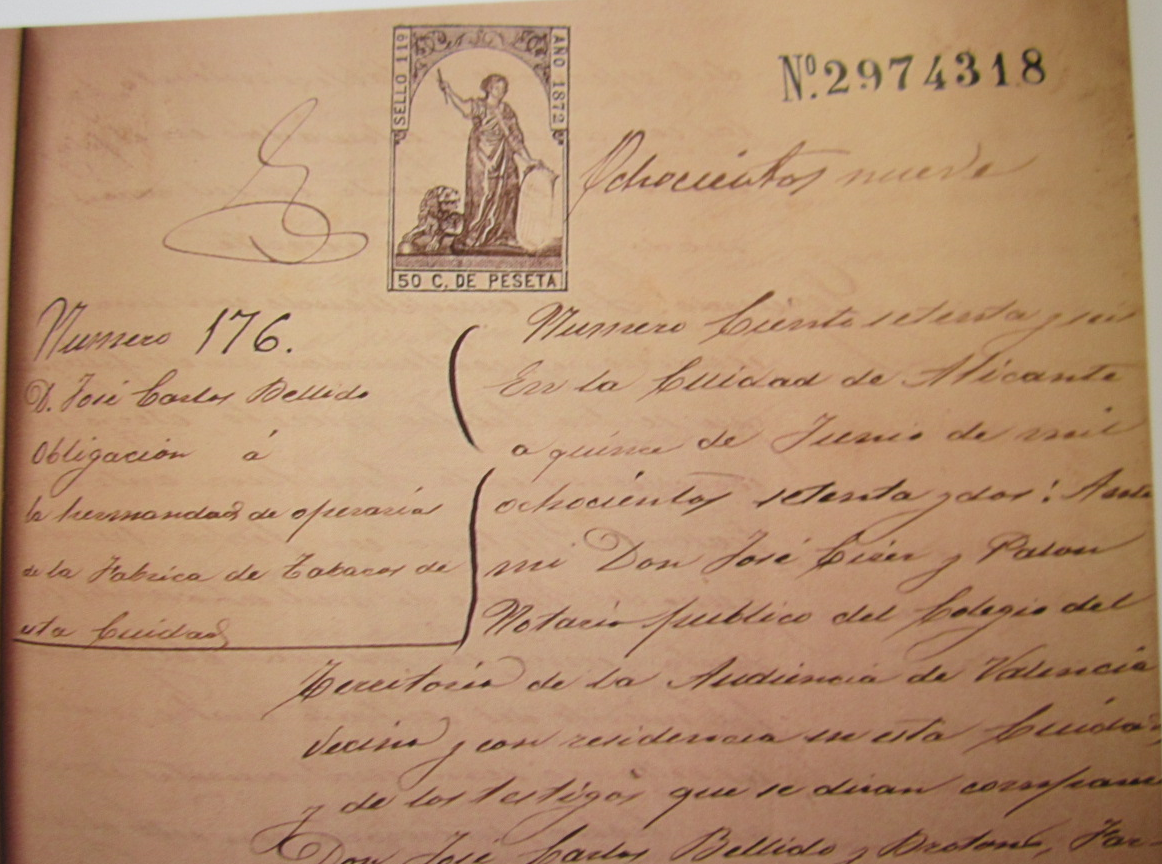 SELLO 11º
AÑO 1872
50 C. DE PESETA
Nº. 2974318
Ochocientos nueve
Numero 176.
D. José Carlos Bellido
Obligacion á
la hermandad de operarias
de la Fabrica de Tabacos de
esta Ciudad
Numero Ciento setenta y seis
En la Ciudad de Alicante
a quince de Junio de mil
ochocientos setenta y dos: Ante
mi Don José Cirer y Palou
Notario publico del Colegio del
Territorio de la Audiencia de Valencia
vecino y con residencia en esta Ciudad,
y de los testigos que se diran comparece
Don José Carlos Bellido y Brotons, Far